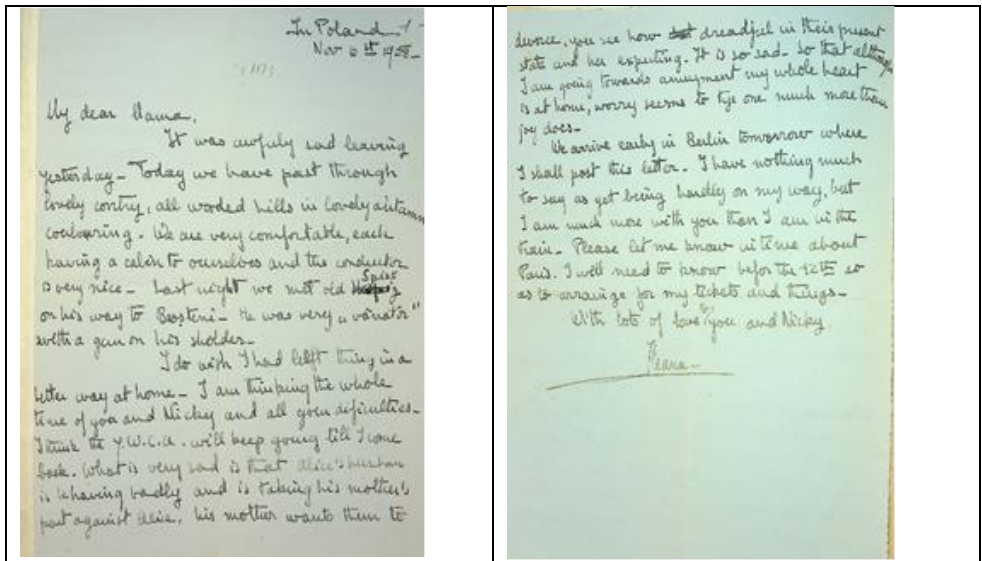 In Poland
Nov 6th 1928-
My dear Mama,
It was awfuly sad leaving
yesterday - Today we have past through
lovely contry, all wooded hills in lovely autamn
coulouring. We are very comfortable, each
having a cabin to ourselves and the conductor
is very nice - Last night we met old
on his way to Brosteni - He was very „vânător"
with a gun on his sholder.
I do wish I had left thing in a
better way at home - I am thinking the whole
time of you and Nicky and all your dificulties -
I think the Y.W.C.A. will keep going till I come
back. What is very sad is that Alice's husban
is behaving badly and is taking his mother's
part against Alice, his mother wants them to
divorce, you see how dreadful in their present
state and her expecting. It is so sad. So that although
I am going towards amusment my whole heart
is at home, worry seems to tye one much more than
joy does -
We arrive early in Berlin tomorrow where
I shall post this letter. I have nothing much
to say as yet being hardley on my way, but
I am much more with you than I am in the
train. Please let me know in time about
Paris. I will need to know befor the 12th so
as to arrainge for my tickets and things -
With lots of love to you and Nicky
Ileana -